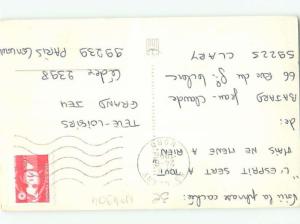 la phrase cachée:
"L'ESPRIT SERT A TOUT
MAIS NE MENE A RIEN
de:
Jean-Claude
66 Rue du Gal Leclerc
59225 CLARY
TELE-LOISIRS
GRAND JEU
Cédex 2398
99239 PARIS CONCOURS